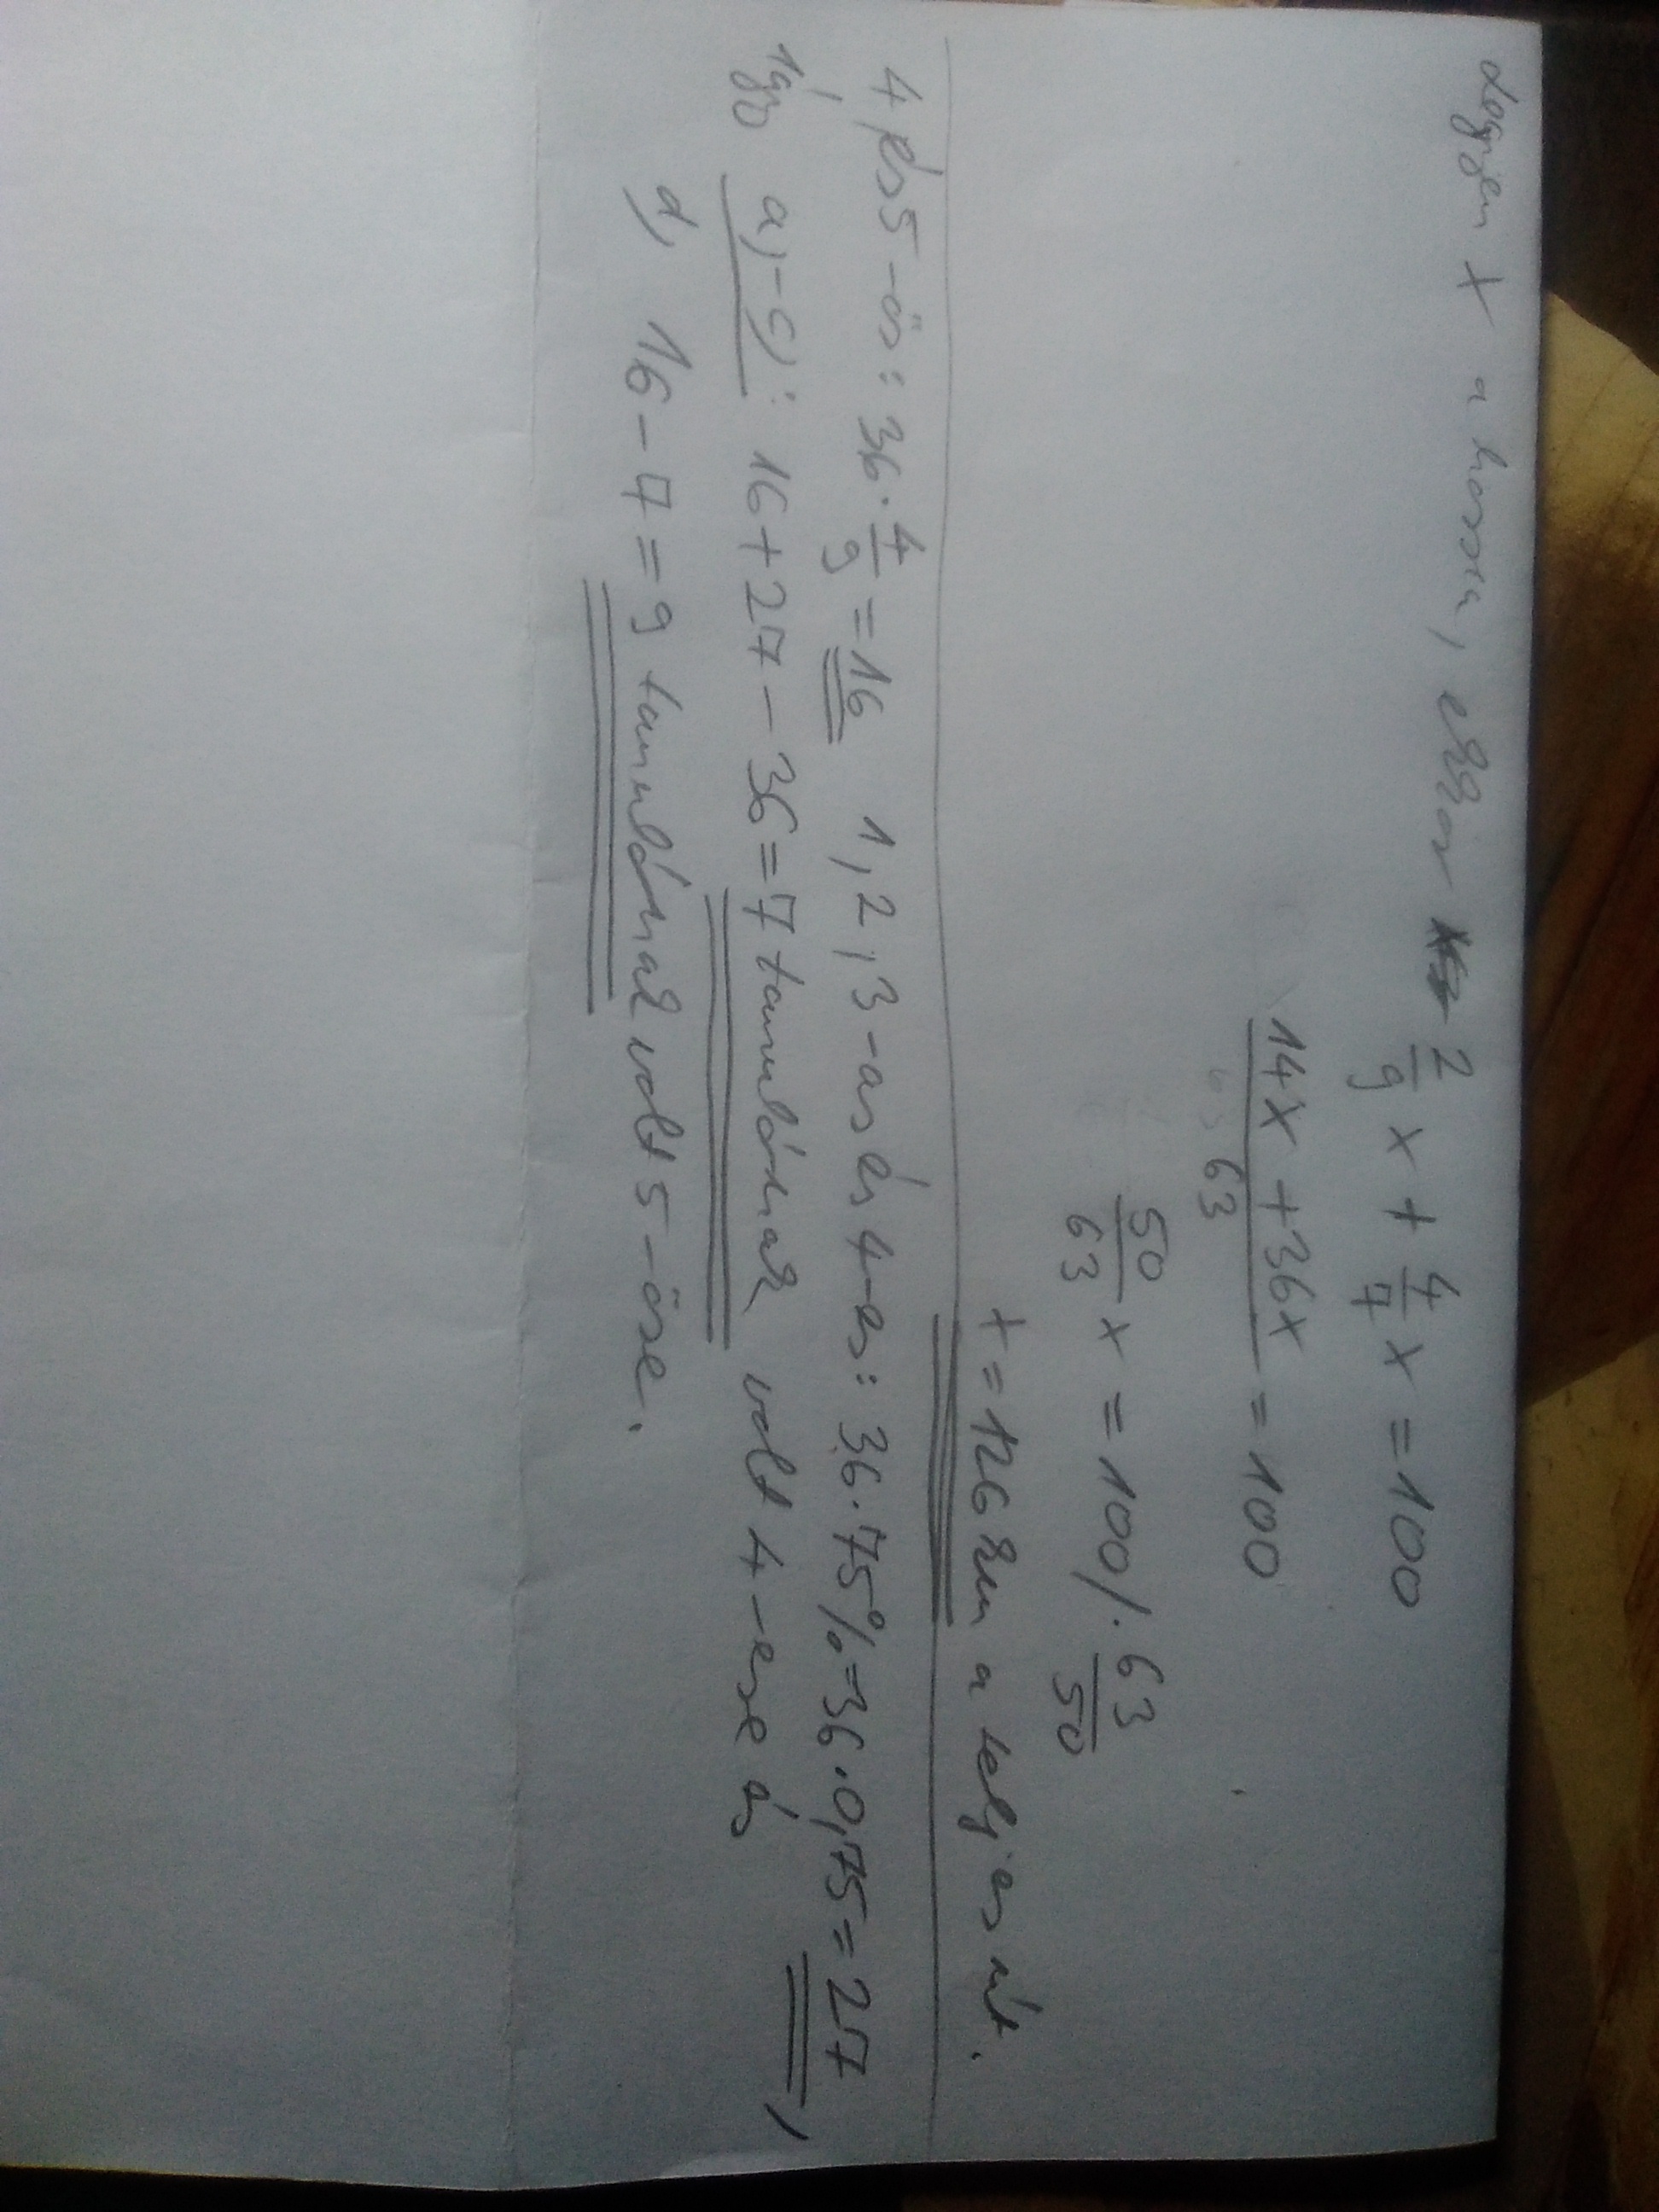 Legyen x a hossza, ekkor 2/9 x + 4/7 x = 100
14x + 36x / 63 = 100
50/63 x = 100 /· 63/50
x = 126 km a teljes út.
4 és 5-ös: 36 · 4/9 = 16 1,2,3-as és 4-es: 36 · 75% = 36 · 0,75 = 27,
így a,-c): 16 + 27 - 36 = 7 tanulónak volt 4-ese és
d, 16 - 7 = 9 tanulónak volt 5-öse.